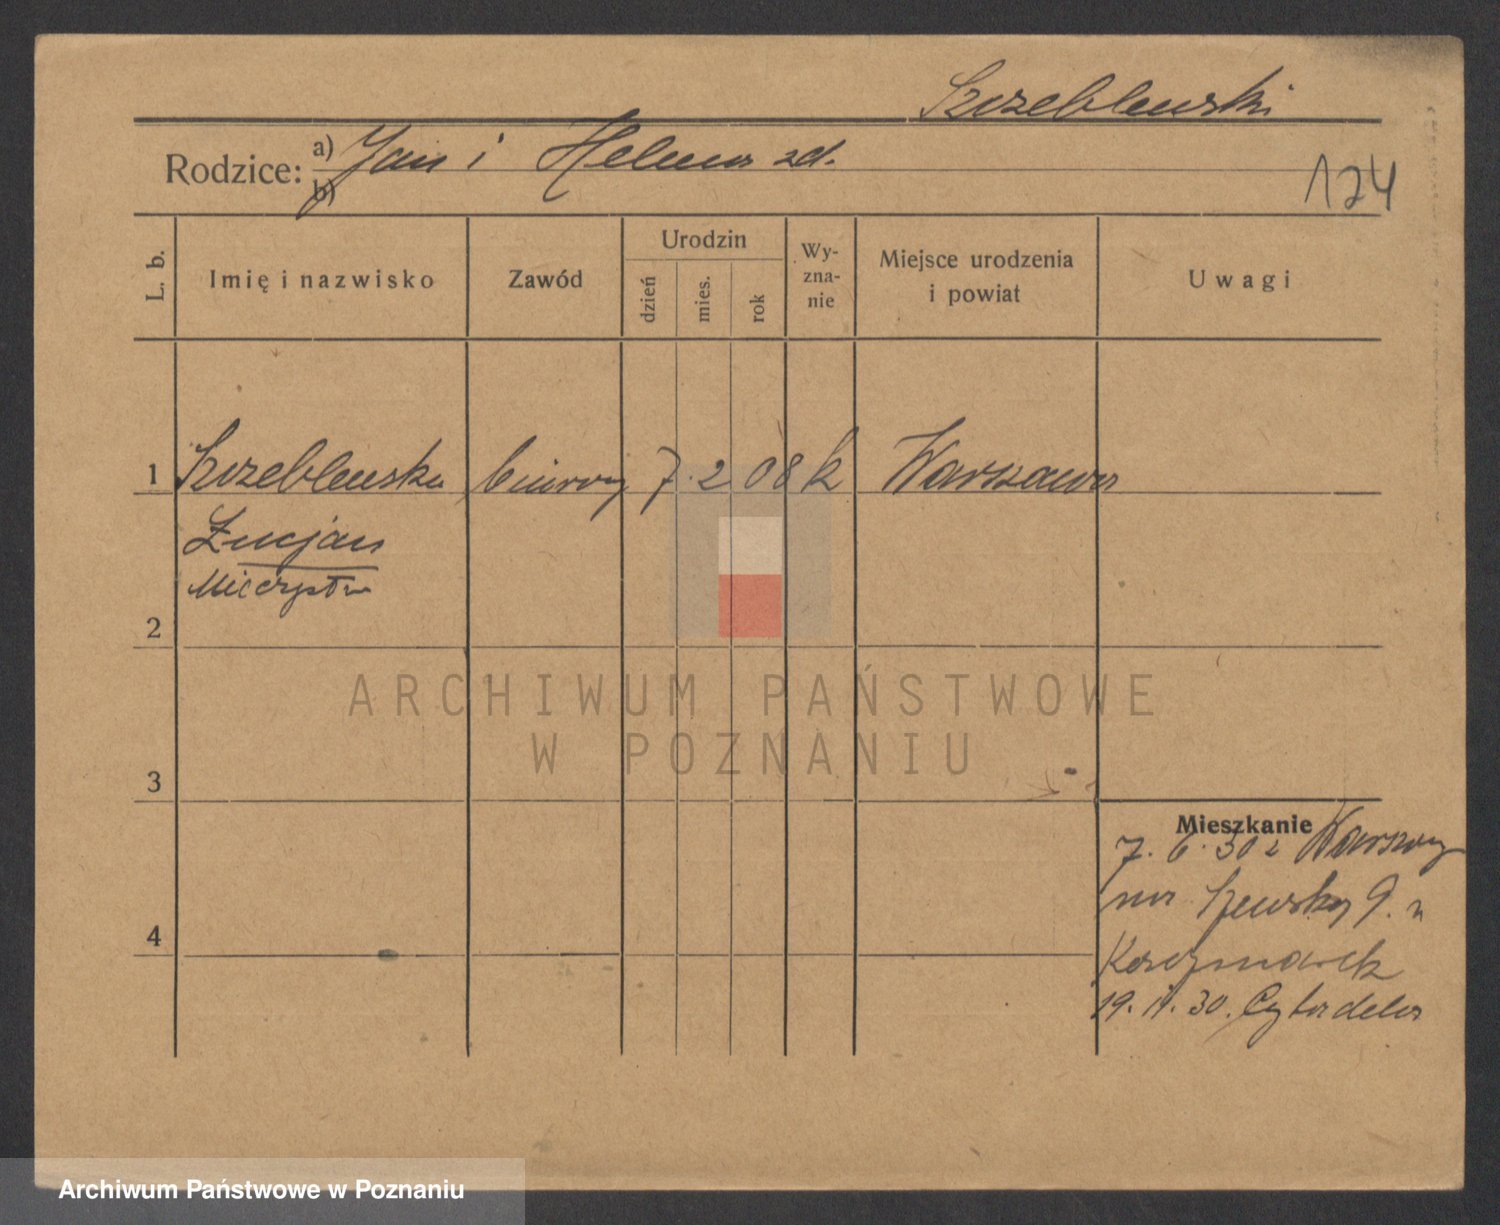 Szczeblewski
Rodzice: a) Jan i Helena zd.
b)
124
L. b.
Imię i nazwisko
Zawód
Urodzin
dzień
mies.
rok
Wy-
zna-
nie
Miejsce urodzenia
i powiat
Uwagi
1 Szczeblewski biurowy 7. 2 08 k Warszawa
Lucjan
Mieczysław
2
ARCHIWUM PAŃSTWOWE
W POZNANIU
3
Mieszkanie
7. 6. 30 z Warszawy
na Szewską 9. u
Kaczmarek
4
19. 30. Cytadela
Archiwum Państwowe w Poznaniu